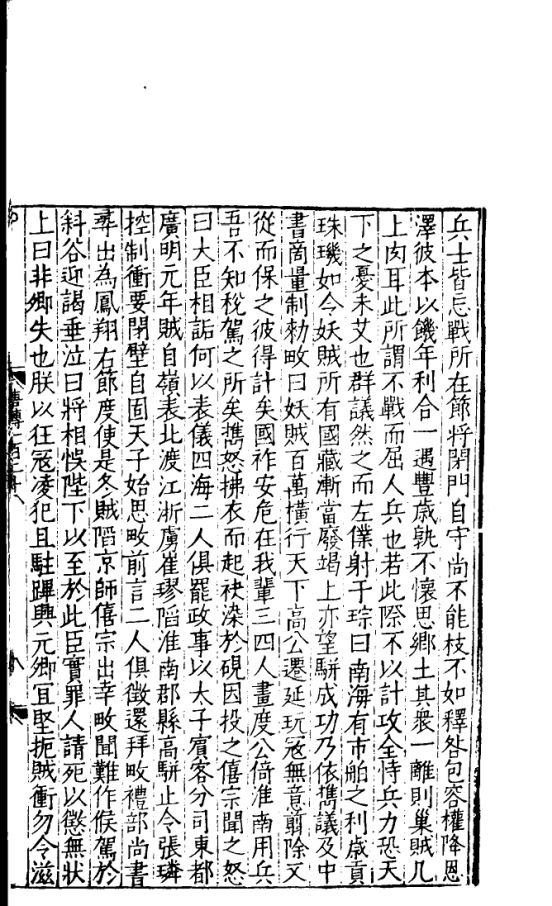 兵士皆忘戰所在節將閉門自守尚不能枝不如釋咎包容權降恩
澤彼本以饑年利合一遇豐歳孰不懷思鄉土其衆一離則巢賊几
上肉耳此所謂不戰而屈人兵也若此際不以計攻全恃兵力恐天
下之憂未艾也群議然之而左僕射于琮曰南海有市舶之利歳貢
珠璣如今妖賊所有國藏漸當廢竭上亦望駢成功乃依攜議及中
書商量制勑畋曰妖賊百萬橫行天下高公遷延玩宼無意翦除又
從而保之彼得計矣國祚安危在我輩三四人畫度公倚淮南用兵
吾不知稅駕之所矣攜怒拂衣而起袂染於硯因投之僖宗聞之怒
曰大臣相詬何以表儀四海二人俱罷政事以太子賓客分司東都
廣明元年賊自嶺表北渡江浙虜崔璆陷淮南郡縣高駢止令張璘
控制衝要閉壁自固天子始思畋前言二人俱徵還拜畋禮部尚書
尋出為鳳翔右節度使是冬賊陷京師僖宗出幸畋聞難作候駕於
斜谷迎謁垂泣曰將相悞陛下以至於此臣實罪人請死以懲無狀
上曰非卿失也朕以狂宼凌犯且駐蹕興元卿宜堅扼賊衝勿令滋